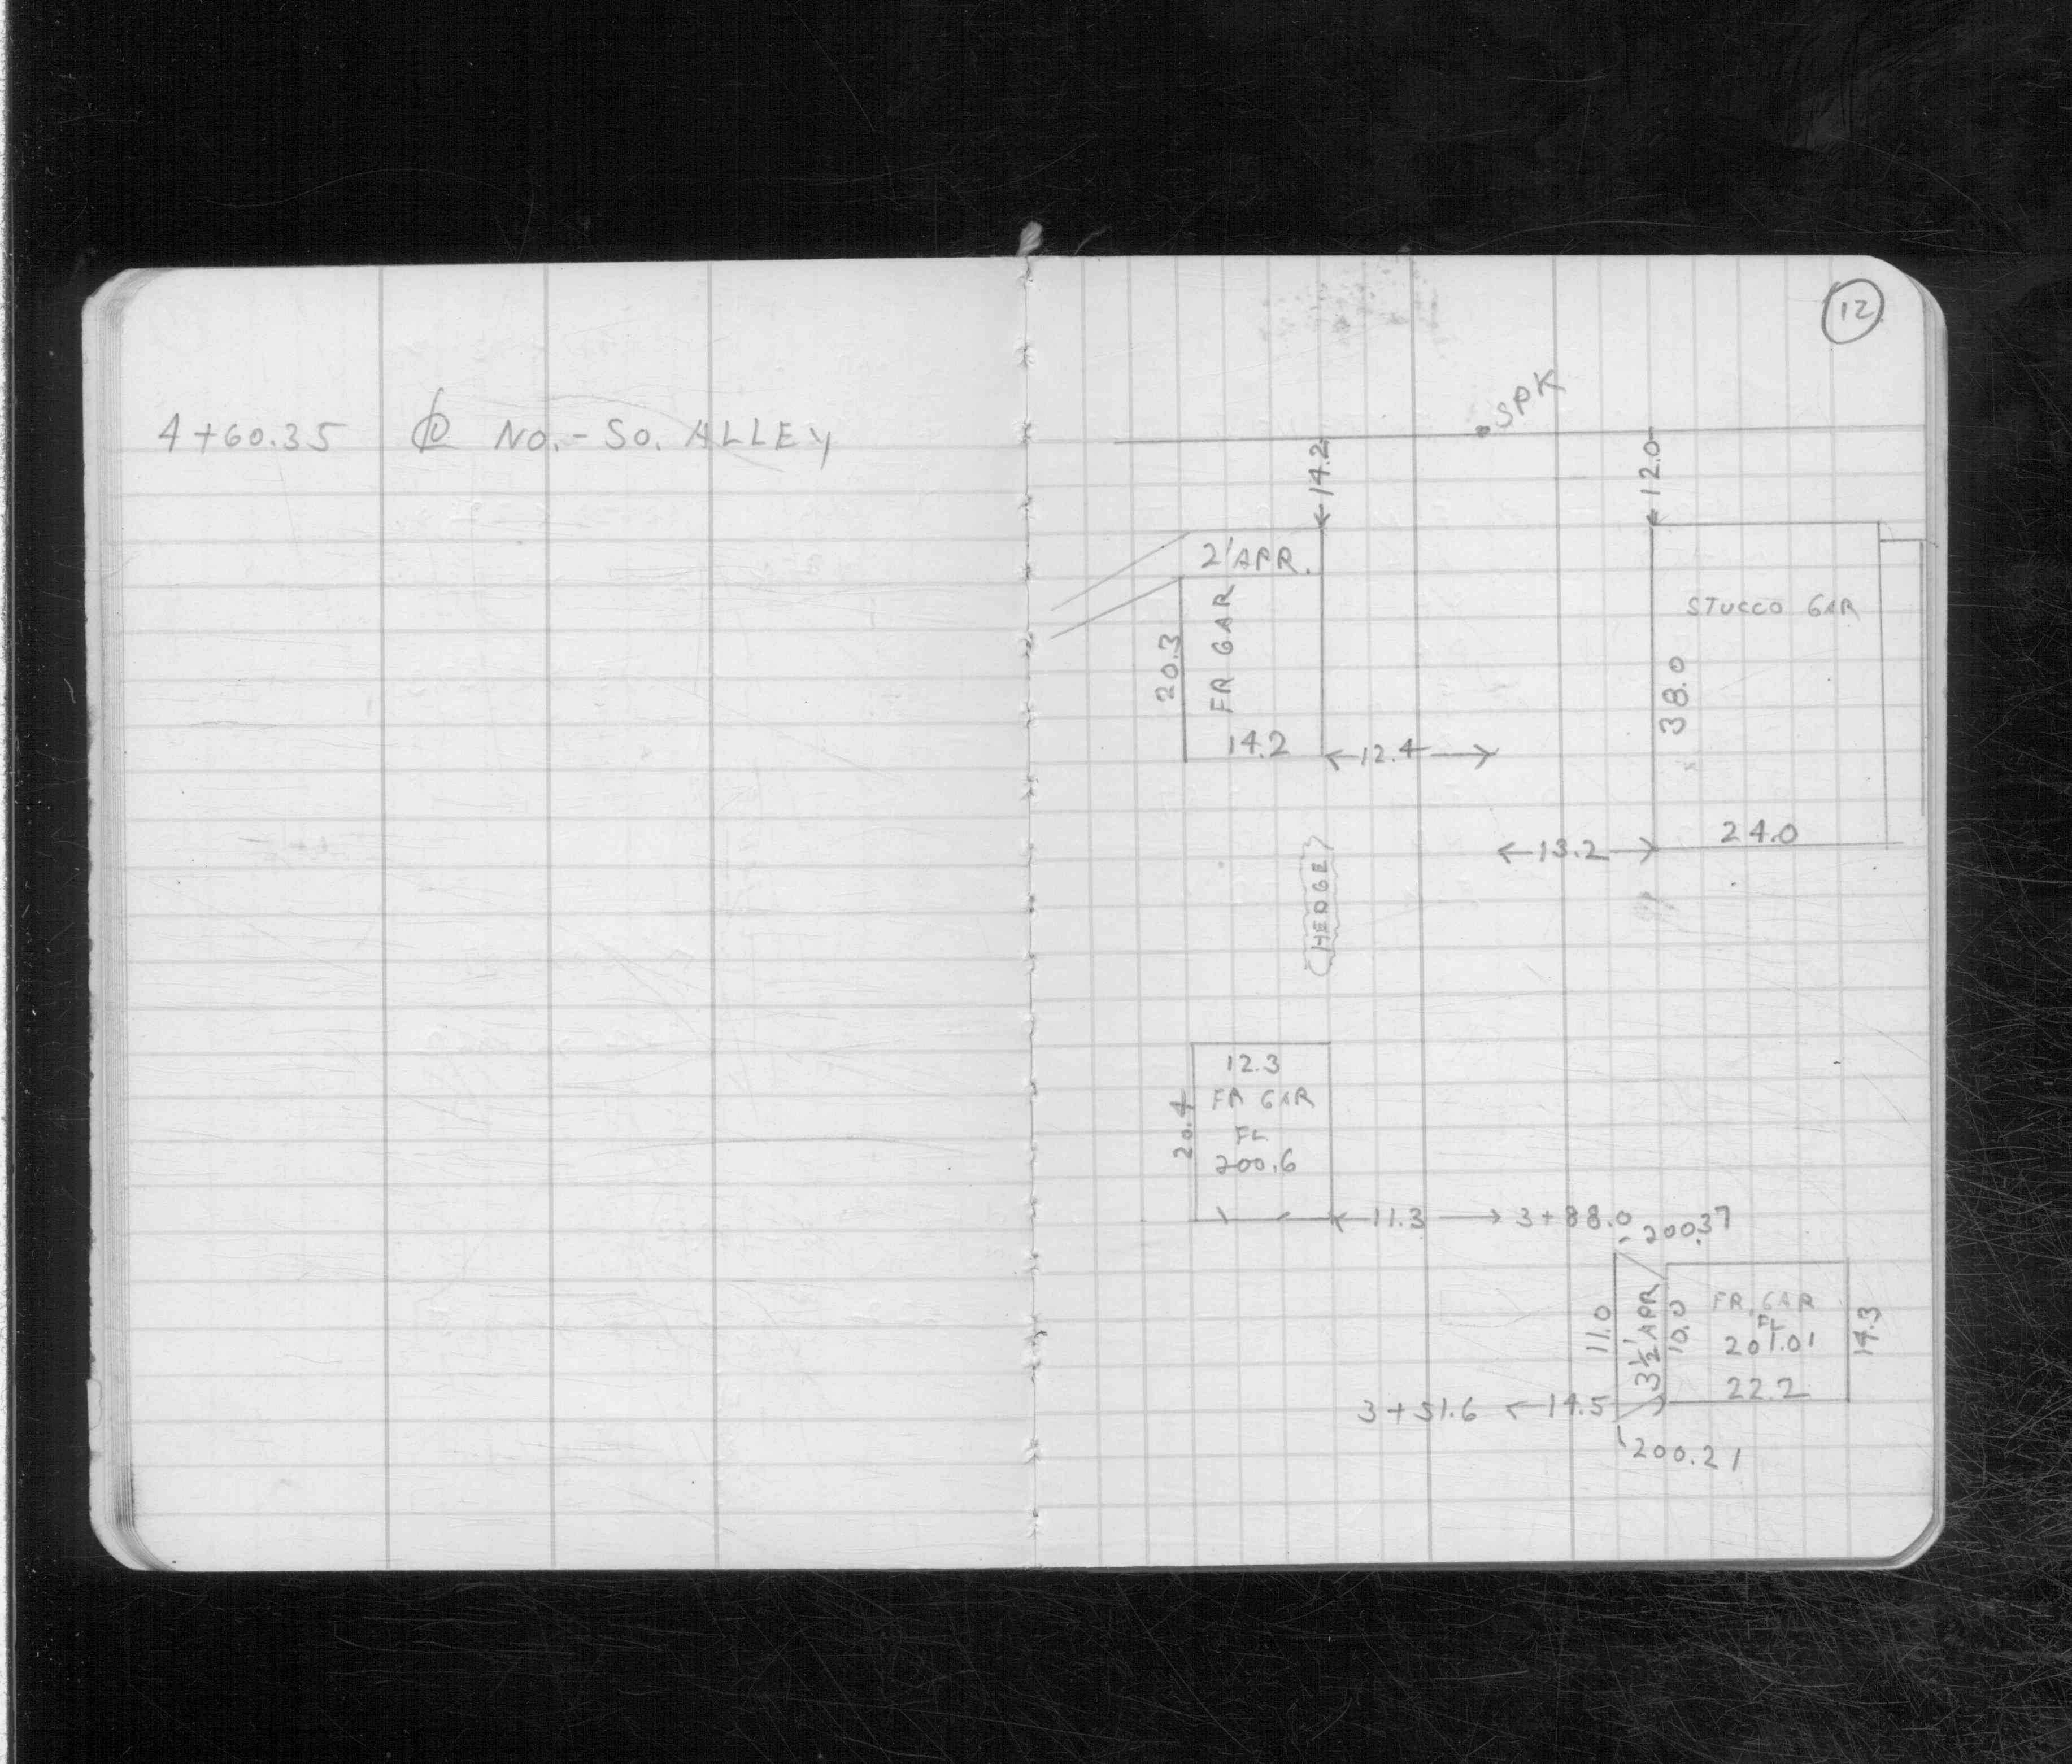 12
4+60.35 ₵ NO.-SO. ALLEY
SPK
14.2
12.0
2' APR.
FR GAR
20.3
14.2
12.4
STUCCO GAR
38.0
24.0
13.2
HEDGE
12.3
FR GAR
FL
200.6
20.4
11.3 3+88.0
200.37
11.0
3½' APR
10.0
FR. GAR
FL
201.01
22.2
14.3
3+51.6 14.5
200.21